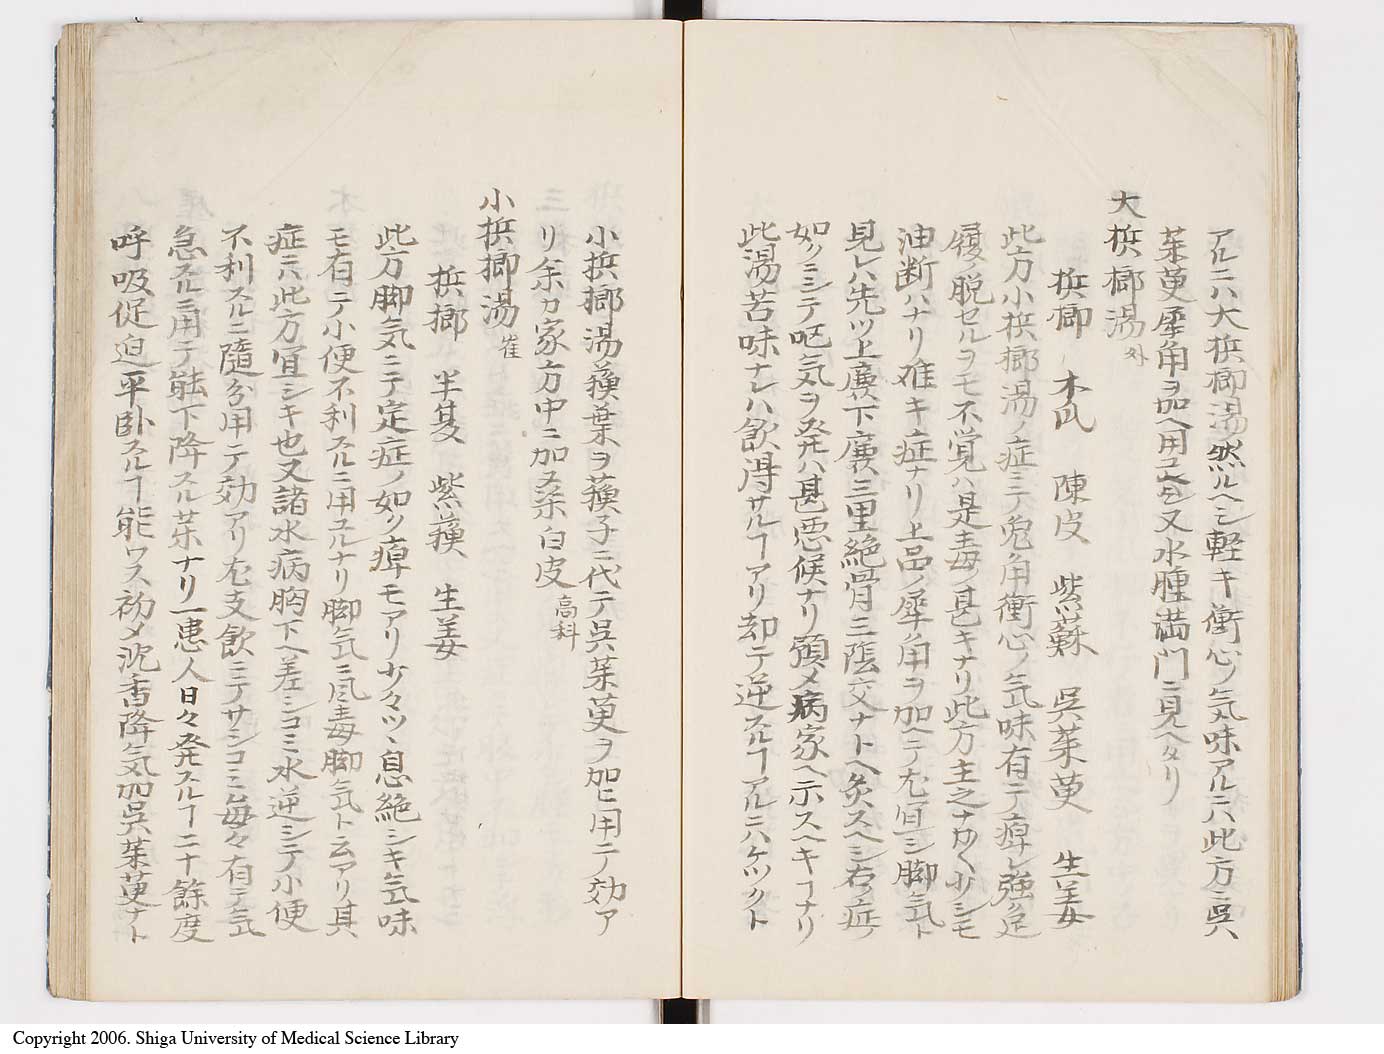 アルニハ大梹榔湯然ルヘシ軽キ衝心ノ気味アルニハ此方ニ呉
茱萸犀角ヲ加ヘ用ユヘシ又水腫満門ニ見ヘタリ
大梹榔湯 外
梹榔 木瓜 陳皮 紫蘇 呉茱萸 生姜
此方小梹榔湯ノ症ニテ兔角衝心ノ気味有テ痺レ強ク足
履ノ脱セルヲモ不覚ハ是毒ノ甚キナリ此方主之ナカク少シモ
油断ハナリ难キ症ナリ上品ノ犀角ヲ加ヘテ尤宜シ脚気ト
見レハ先ツ上廉下廉三里絶骨三陰交ナトヘ灸スヘシ右ノ症ノ
如クニシテ呕気ヲ発ハ甚悪候ナリ預メ病家ヘ示スヘキヿナリ
此湯苦味ナレハ飲得サルヿアリ却テ逆スルヿアルニハケツクト
小梹榔湯蘓葉ヲ蘓子ニ代テ呉茱萸ヲ加ヒ用ニテ効ア
リ余カ家方中ニ加桑白皮 高科
小梹榔湯 崔
梹榔 半夏 紫蘓 生姜
此方脚気ニテ定症ノ如ク痺モアリ少々ツヽ息絶シキ気味
モ有テ小便不利スルニ用ユルナリ脚気ニ風毒脚気ト云アリ其
症ニハ此方宜シキ也又諸水病胸下ヘ差シコミ水逆シテ小便
不利スルニ随分用テ効アリ尤支飲ニテサシコミ毎々有テ気
急スルニ用テ能下降スル茱ナリ一患人日々発スルヿ二十餘度
呼吸促迫平卧スルヿ能ワス初メ沈香降気加呉茱萸ナト
Copyright 2006. Shiga University of Medical Science Library